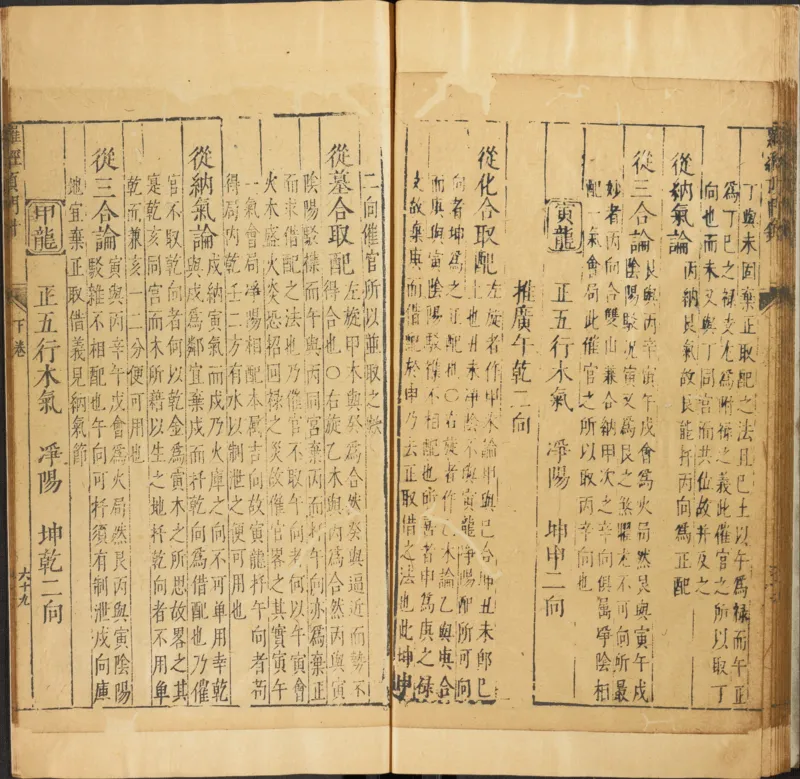 丁與未固棄正取配之法且巳土以午為祿而午正
為丁巳之祿支尤為附祿之義此催官之所以取丁
向也而未又與丁同宮而共位故并及之
從納氣論 丙納艮氣故艮龍扦丙向為正配
從三合論 艮與丙辛寅午戌會為火局然艮與寅午戌
陰陽駁況寅又為艮之煞曜尤不可向所最
妙者丙向合雙山兼合納甲次之辛向俱屬淨陰相
配一氣會局此催官之所以取丙辛向也
寅龍 正五行木氣 淨陽 坤申二向
推廣午乾二向
從化合取配 左旋者作甲木論甲與己合坤丑未即己
土也丑未淨陰不與寅龍淨陽配所可向
向者坤為之正配也〇右旋者作乙木論乙與庚合
而庚與寅陰陽駁襍不相配也所善者申為庚之祿
支故棄庚而借配於申乃去正取借之法也此坤申
二向催官所以並取之歟
從墓合取配 左旋甲木與癸為合然癸與逼近而勢不
得合也〇右旋乙木與丙為合然丙與寅
陰陽駁襍而午與丙同宮棄丙而扦午向亦為棄正
而來借配之法也乃催官不取午向者何以午寅會
火木盛火炎恐招回祿之災故催官畧之其實寅午
一氣會局淨陽相配本為吉向故寅龍扦午向者苟
得局內乾壬二方有水以制泄之便可用也
從納氣論 戌納寅氣而戌乃火庫之向不可单用幸乾
與戌為鄰宜棄戌而扦乾向為借配也乃催
官不取乾向者何以乾金為寅木之所忌故畧之其
寔乾亥同宮而木所藉以生之地扦乾向者不用单
乾而兼亥一二分便可用也
從三合論 寅與丙辛午戌會為火局然艮丙與寅陰陽
駁雜不相配也午向可扦須有制泄戌向庫
地宜棄正取借義見納氣節
甲龍 正五行木氣 淨陽 坤乾二向
下卷
六十九